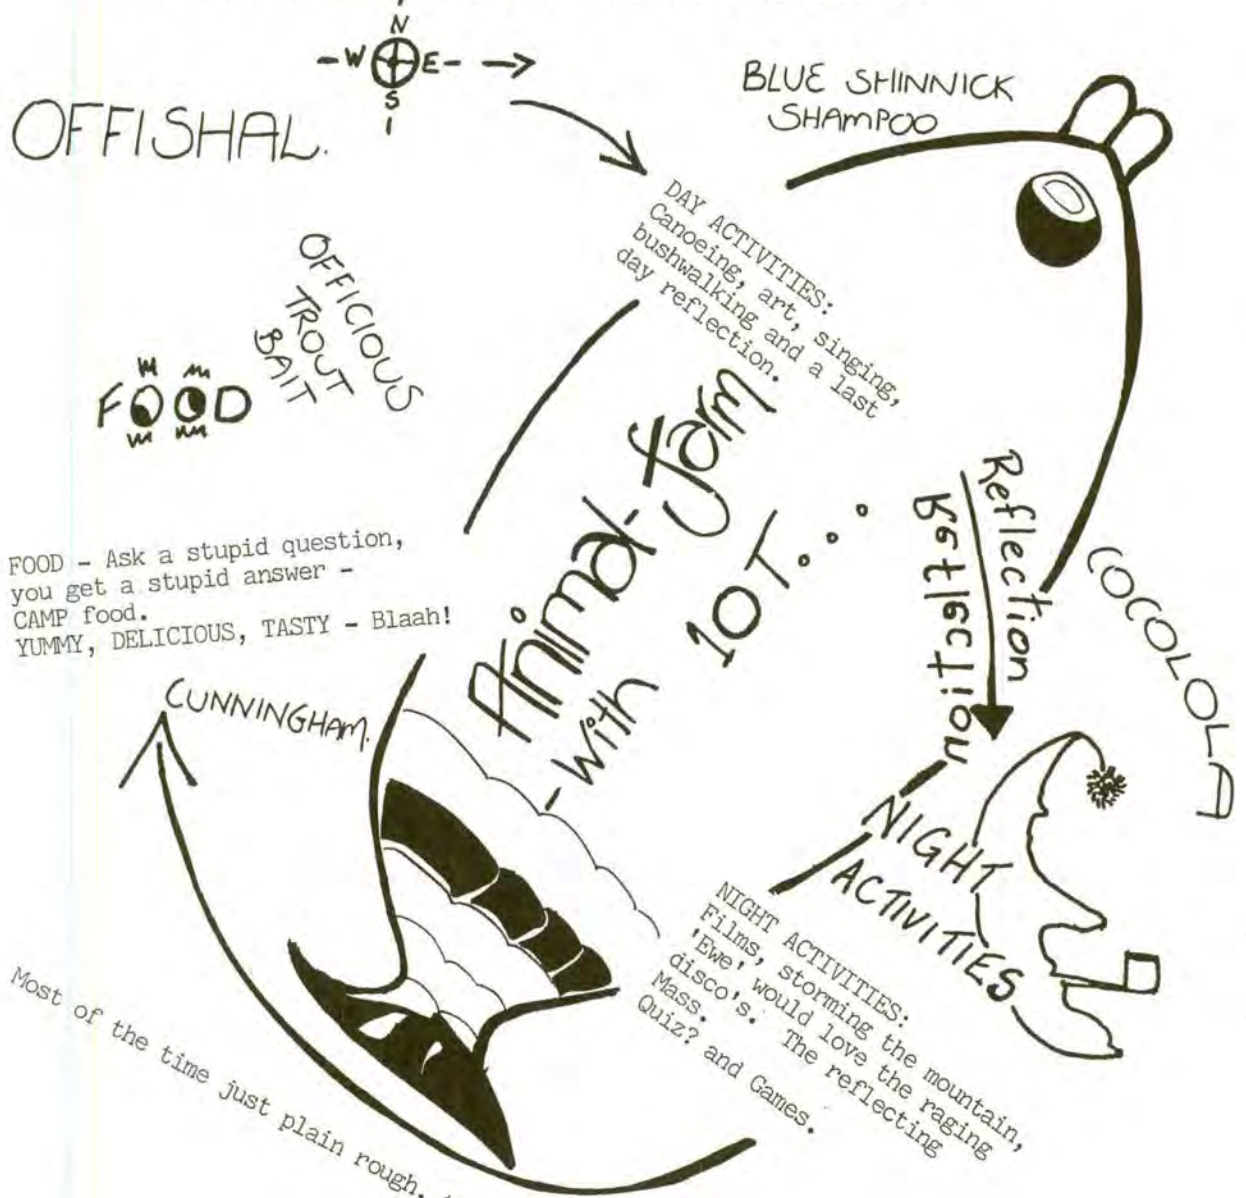 N
- W E -
S
OFFISHAL.
BLUE SHINNICK
SHAMPOO
OFFICIOUS
TROUT
BAIT
DAY ACTIVITIES:
Canoeing, art, singing,
bushwalking and a last
day reflection.
FOOD
FOOD - Ask a stupid question,
you get a stupid answer -
CAMP food.
YUMMY, DELICIOUS, TASTY - Blaah!
Animal-farm
- with 10T...
Reflection
Reflection
COCOLOLA
CUNNINGHAM.
NIGHT
ACTIVITIES
NIGHT ACTIVITIES:
Films, storming the mountain,
'Ewe' would love the raging
disco's. The reflecting
Mass.
Quiz? and Games.
Most of the time just plain rough.